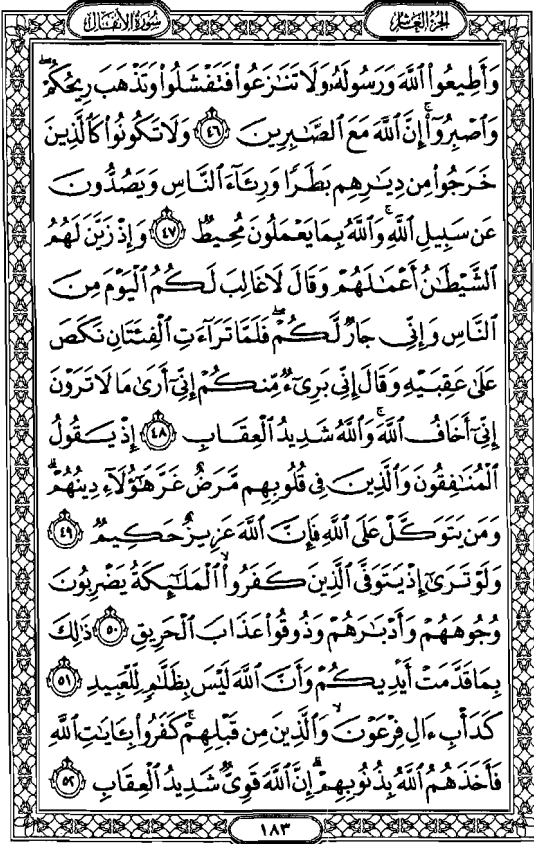 الجزء العاشر
سورة الأنفال
وَأَطِيعُوا۟ ٱللَّهَ وَرَسُولَهُۥ وَلَا تَنَـٰزَعُوا۟ فَتَفْشَلُوا۟ وَتَذْهَبَ رِيحُكُمْ ۖ
وَٱصْبِرُوٓا۟ ۚ إِنَّ ٱللَّهَ مَعَ ٱلصَّـٰبِرِينَ ٤٦ وَلَا تَكُونُوا۟ كَٱلَّذِينَ
خَرَجُوا۟ مِن دِيَـٰرِهِم بَطَرًا وَرِئَآءَ ٱلنَّاسِ وَيَصُدُّونَ
عَن سَبِيلِ ٱللَّهِ ۚ وَٱللَّهُ بِمَا يَعْمَلُونَ مُحِيطٌ ٤٧ وَإِذْ زَيَّنَ لَهُمُ
ٱلشَّيْطَـٰنُ أَعْمَـٰلَهُمْ وَقَالَ لَا غَالِبَ لَكُمُ ٱلْيَوْمَ مِنَ
ٱلنَّاسِ وَإِنِّى جَارٌ لَّكُمْ ۖ فَلَمَّا تَرَآءَتِ ٱلْفِئَتَانِ نَكَصَ
عَلَىٰ عَقِبَيْهِ وَقَالَ إِنِّى بَرِىٓءٌ مِّنكُمْ إِنِّىٓ أَرَىٰ مَا لَا تَرَوْنَ
إِنِّىٓ أَخَافُ ٱللَّهَ ۚ وَٱللَّهُ شَدِيدُ ٱلْعِقَابِ ٤٨ إِذْ يَقُولُ
ٱلْمُنَـٰفِقُونَ وَٱلَّذِينَ فِى قُلُوبِهِم مَّرَضٌ غَرَّ هَـٰٓؤُلَآءِ دِينُهُمْ ۗ
وَمَن يَتَوَكَّلْ عَلَى ٱللَّهِ فَإِنَّ ٱللَّهَ عَزِيزٌ حَكِيمٌ ٤٩
وَلَوْ تَرَىٰٓ إِذْ يَتَوَفَّى ٱلَّذِينَ كَفَرُوا۟ ۙ ٱلْمَلَـٰٓئِكَةُ يَضْرِبُونَ
وُجُوهَهُمْ وَأَدْبَـٰرَهُمْ وَذُوقُوا۟ عَذَابَ ٱلْحَرِيقِ ٥٠ ذَٰلِكَ
بِمَا قَدَّمَتْ أَيْدِيكُمْ وَأَنَّ ٱللَّهَ لَيْسَ بِظَلَّـٰمٍ لِّلْعَبِيدِ ٥١
كَدَأْبِ ءَالِ فِرْعَوْنَ ۙ وَٱلَّذِينَ مِن قَبْلِهِمْ ۚ كَفَرُوا۟ بِـَٔايَـٰتِ ٱللَّهِ
فَأَخَذَهُمُ ٱللَّهُ بِذُنُوبِهِمْ ۗ إِنَّ ٱللَّهَ قَوِىٌّ شَدِيدُ ٱلْعِقَابِ ٥٢
١٨٣